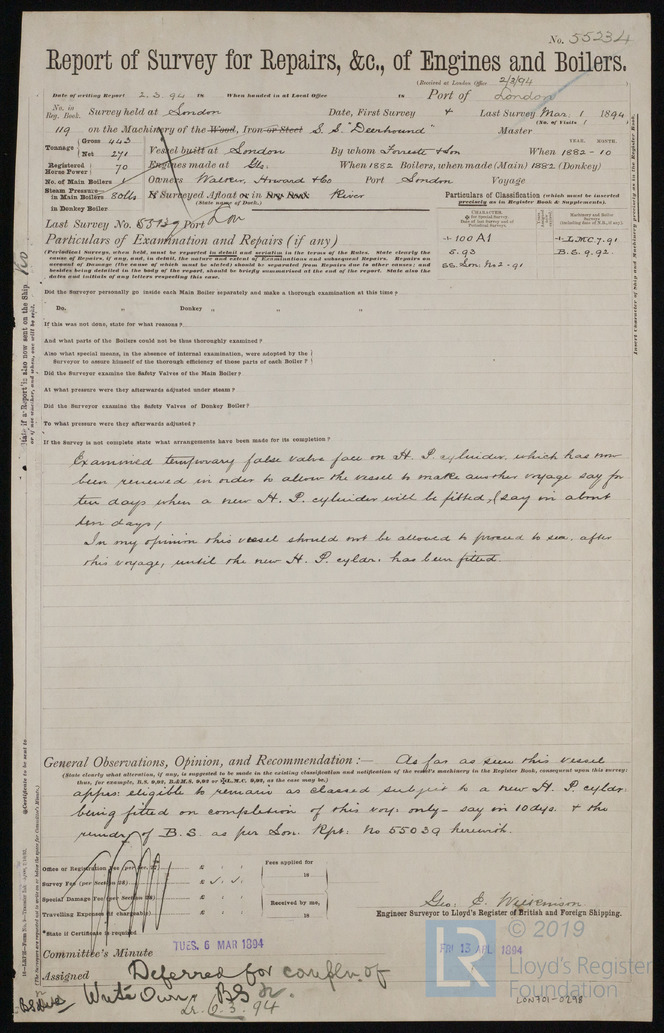 No. 55234
Report of Survey for Repairs, &c., of Engines and Boilers.
(Received at London Office 2/3/94
Date of writing Report 2. 3. 94 18 When handed in at Local Office 18 Port of London
No. in Reg. Book. Survey held at London Date, First Survey + Last Survey Mar. 1 1894
(No. of Visits
119 on the Machinery of the Wood, Iron or Steel S. S. "Deerhound" Master
Tonnage Gross 443 Net 271 Vessel built at London By whom Forrestt & Son When YEAR. MONTH. 1882 - 10
Registered Horse Power 70 Engines made at Gls. When 1882 Boilers, when made (Main) 1882 (Donkey)
No. of Main Boilers 1 Owners Walker, Howard & Co Port London Voyage
Steam Pressure in Main Boilers 80lbs If Surveyed Afloat or in Dry Dock River
(State name of Dock.)
in Donkey Boiler
Particulars of Classification (which must be inserted precisely as in Register Book & Supplements).
Last Survey No. Port Lon
CHARACTER.
Particulars of Examination and Repairs (if any)
+ 100 A1 + LMC 7.91
5.93 B.S. 9.92.
SS. Lon: No2 - 91
(Periodical Surveys, when held, must be reported in detail and seriatim in the terms of the Rules. State clearly the
cause of Repairs, if any, and, in detail, the nature and extent of Examinations and subsequent Repairs. Repairs on
account of Damage (the cause of which must be stated) should be separated from Repairs due to other causes; and
besides being detailed in the body of the report, should be briefly summarised at the end of the report. State also the
dates and initials of any letters respecting this case.
Did the Surveyor personally go inside each Main Boiler separately and make a thorough examination at this time?
Do. „ Donkey „ „ „
If this was not done, state for what reasons?
And what parts of the Boilers could not be thus thoroughly examined?
Also what special means, in the absence of internal examination, were adopted by the
Surveyor to assure himself of the thorough efficiency of those parts of each Boiler?
Did the Surveyor examine the Safety Valves of the Main Boiler?
At what pressure were they afterwards adjusted under steam?
Did the Surveyor examine the Safety Valves of Donkey Boiler?
To what pressure were they afterwards adjusted?
If the Survey is not complete state what arrangements have been made for its completion?
Examined temporary false valve face on H. P. cylinder, which has now
been renewed in order to allow the vessel to make another voyage say for
ten days when a new H. P. cylinder will be fitted, (say in about
ten days)
In my opinion this vessel should not be allowed to proceed to sea, after
this voyage, until the new H. P. cyldr: has been fitted.
General Observations, Opinion, and Recommendation :— As far as seen this vessel
(State clearly what alteration, if any, is suggested to be made in the existing classification and notification of the vessel's machinery in the Register Book, consequent upon this survey;
thus, for example, B.S. 9,92, B.&M.S. 9,92 or +L.M.C. 9,92, as the case may be.)
apprs: eligible to remain as classed subject to a new H. P. cyldr:
being fitted on completion of this voy: only - say in 10 days. & the
remdr of B. S. as per Lon. Rpt: No 55039 herewith.
Office or Registration Fee £ : : Fees applied for
18
Survey Fee (per Section 28) £ : :
Special Damage Fee £ : : Received by me,
Travelling Expenses (if chargeable) £ : : 18
*State if Certificate is required
Geo: E. Wilkinson
Engineer Surveyor to Lloyd's Register of British and Foreign Shipping.
Committee's Minute TUES. 6 MAR 1894 FRI 13 APL 1894
Assigned Deferred for compln. of
Write Own. BS &c.
6.3.94
LR
© 2019
Lloyd's Register
Foundation
LON701-0298
Insert Character of Ship and Machinery precisely as in the Register Book.
State if a Report is also now sent on the Ship No